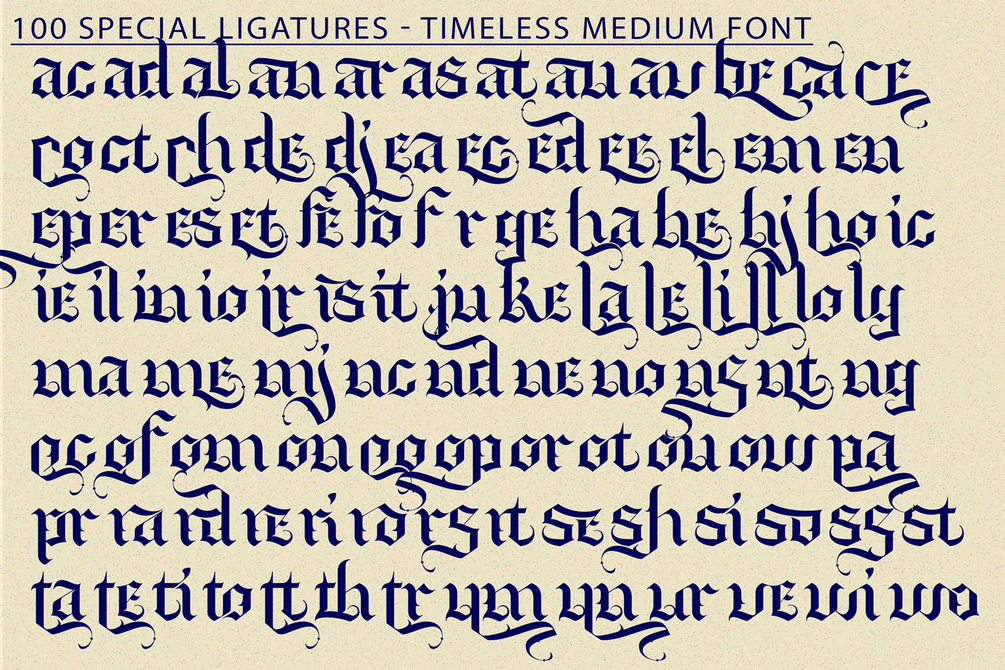 100 SPECIAL LIGATURES - TIMELESS MEDIUM FONT
ac ad al an ar as at au av be ca ce
co ct ch de dj ea ec ed ee el em en
ep er es et fe fo f r ge ha he hj ho ic
ie il in io jr is it ju ke la le li ll lo ly
ma me mj nc nd ne no ns nt ng
oc of om on oo op or ot ou ow pa
pr ra rd re ri ro rs rt se sh si so ss st
ta te ti to tt th tr um un ur ve wi wo